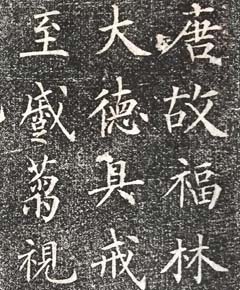 唐故福林
大德具戒
至視